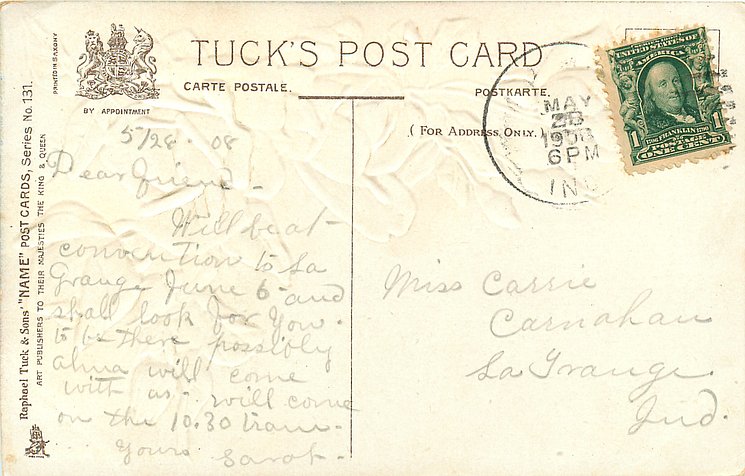 TUCK'S POST CARD
CARTE POSTALE.
POSTKARTE.
(FOR ADDRESS ONLY.)
BY APPOINTMENT
PRINTED IN SAXONY
Raphael Tuck & Sons' "NAME" POST CARDS, Series No. 131.
ART PUBLISHERS TO THEIR MAJESTIES THE KING & QUEEN
MAY
28
1908
6PM
IND
UNITED STATES OF
AMERICA
1 FRANKLIN 1
POSTAGE
ONE CENT
5/28 - 08
Dear friend -
Will be at
convention to La
Grange June 6 - and
shall look for you -
to be there possibly
alma will come
with us - will come
on the 10.30 train -
Yours Sarah -
Miss Carrie
Carnahan
La Grange.
Ind.